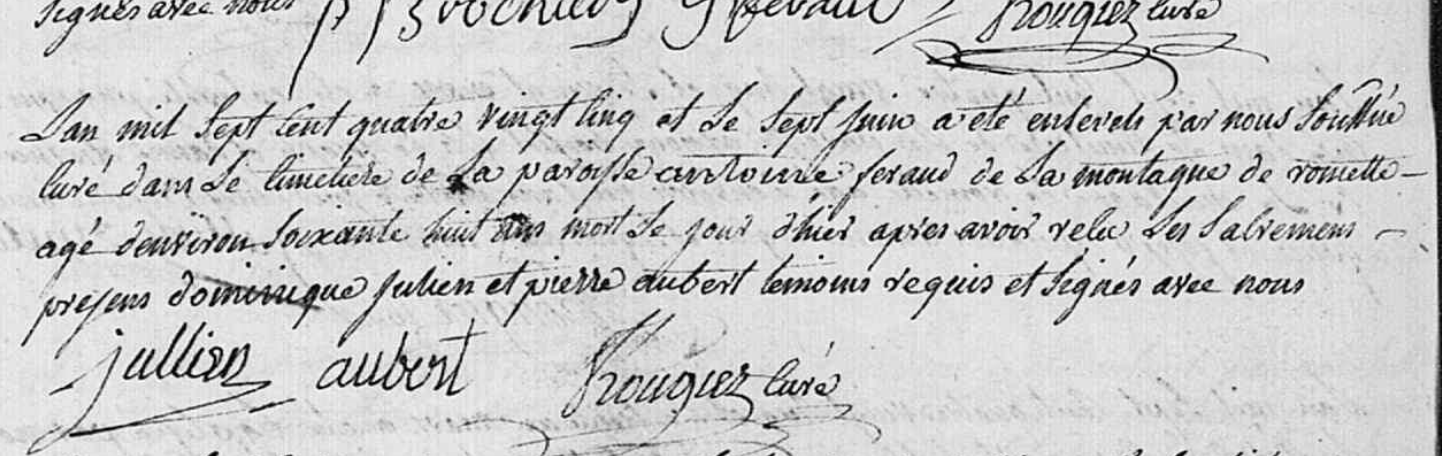 signés avec nous Rougiez curé
Lan mil sept cent quatre vingt cinq et le sept juin a été enseveli par nous soussigné
curé dans le cimetiere de la paroisse antoine feraud de la montagne de romette
agé d'environ soixante huit ans mort le jour d'hier apres avoir recu les sacremens
presens dominique julien et pierre aubert temoins requis et signés avec nous
jullien aubert Rougiez curé